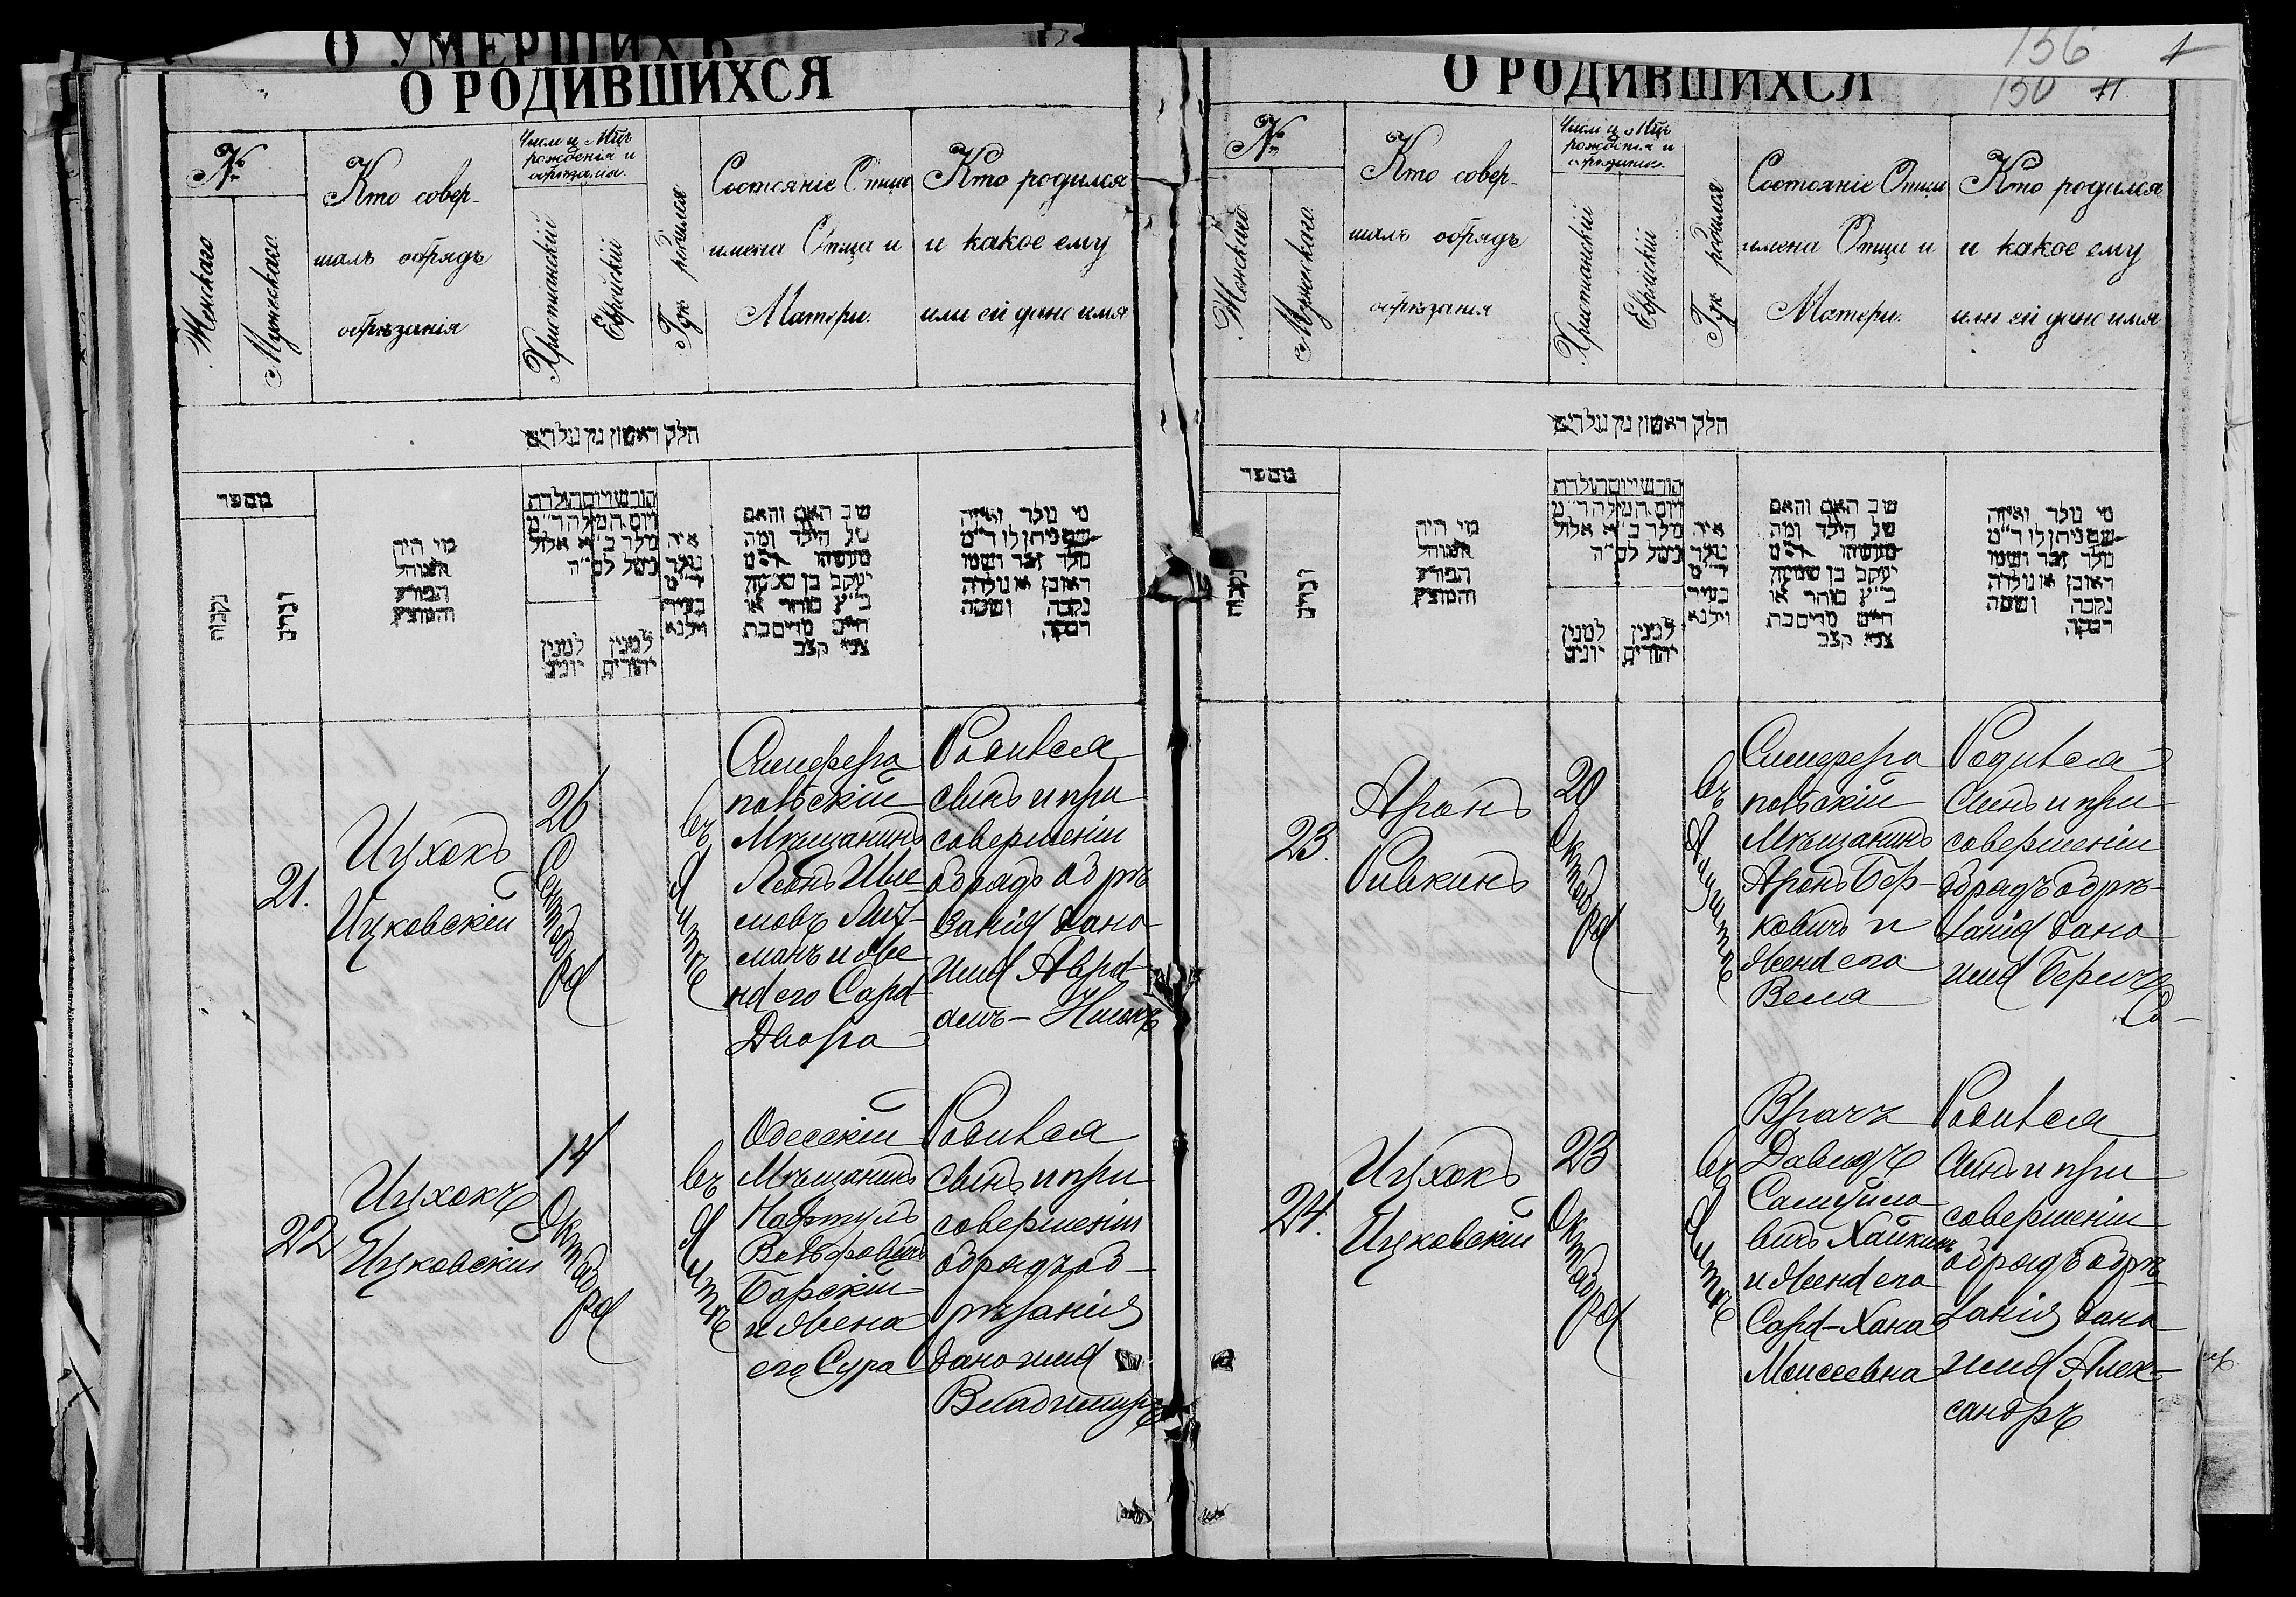 О УМЕРШИХЪ
О РОДИВШИХСЯ
№
Женскаго
Мужескаго
Кто совер-
шалъ обрядъ
обрѣзанія
Число и Мѣц
рожденія и
обрѣзанія.
Христіанскій
Еврейскій
Гдѣ родился
Состояніе Отца
имена Отца и
Матери.
Кто родился
и какое ему
или ей дано имя
חלק ראשון מן נולדים
מספר
נקבות
זכרים
מי היה
המוהל
הפורע
והמוצץ
חודש ויום הולדת
ויום המילה ד״מ
נולד ב״א אלול
נימל לס״ה
למנין
יונים
למנין
יהודים
איה
נולד
ד״מ
בעיר
ווילנא
שם האב והאם
של הילד ומה
מעשהו ד״מ
יעקב בן שמעון
כ״ץ סוחר או
חיים מרים בת
צבי קצב
מי נולד ואיזה
שם ניתן לו ד״מ
נולד זכר ושמו
ראובן או נולדה
נקבה ושמה
רבקה
21.
Ицхокъ
Ицковскій
26
Сентября
въ
Ялтѣ
Симферо
польскій
Мѣщанинъ
Леонъ Шле
мовъ
манъ и Же
на его Сара-
Двора
Родился
сынъ и при
совершеніи
обряда обрѣ
занія дано
имя Авра-
амъ-
22
Ицхокъ
Ицковскій
14
Октября
въ
Ялтѣ
Одесскій
Мѣщанинъ
Нафтулъ
Вольфовичъ
Барскій
и Жена
его Сура
Родился
сынъ и при
совершеніи
обряда об-
рѣзанія
дано имя
Владимиръ
156
150
О РОДИВШИХСЯ
№
Женскаго
Мужескаго
Кто совер-
шалъ обрядъ
обрѣзанія
Число и Мѣц
рожденія и
обрѣзанія.
Христіанскій
Еврейскій
Гдѣ родился
Состояніе Отца
имена Отца и
Матери.
Кто родился
и какое ему
или ей дано имя
חלק ראשון מן נולדים
מספר
נקבות
זכרים
מי היה
המוהל
הפורע
והמוצץ
חודש ויום הולדת
ויום המילה ד״מ
נולד ב״א אלול
נימל לס״ה
למנין
יונים
למנין
יהודים
איה
נולד
ד״מ
בעיר
ווילנא
שם האב והאם
של הילד ומה
מעשהו ד״מ
יעקב בן שמעון
כ״ץ סוחר או
חיים מרים בת
צבי קצב
מי נולד ואיזה
שם ניתן לו ד״מ
נולד זכר ושמו
ראובן או נולדה
נקבה ושמה
רבקה
23.
Аронъ
Ривкинъ
20
Октября
въ
Симферо
польскій
Мѣщанинъ
Аронъ Бер-
ковичъ и
Жена его
Вела
Родился
сынъ и при
совершеніи
обрядъ обрѣ-
занія дано
имя
24.
Ицхокъ
Ицковскій
23
Октября
въ
Ялтѣ
Врачъ
Давидъ
Самуило
вичъ Хайкинъ
и Жена его
Сара-Хана
Моисеевна
Родился
сынъ и при
совершеніи
обрядъ обрѣ
занія дано
имя Алек-
сандръ